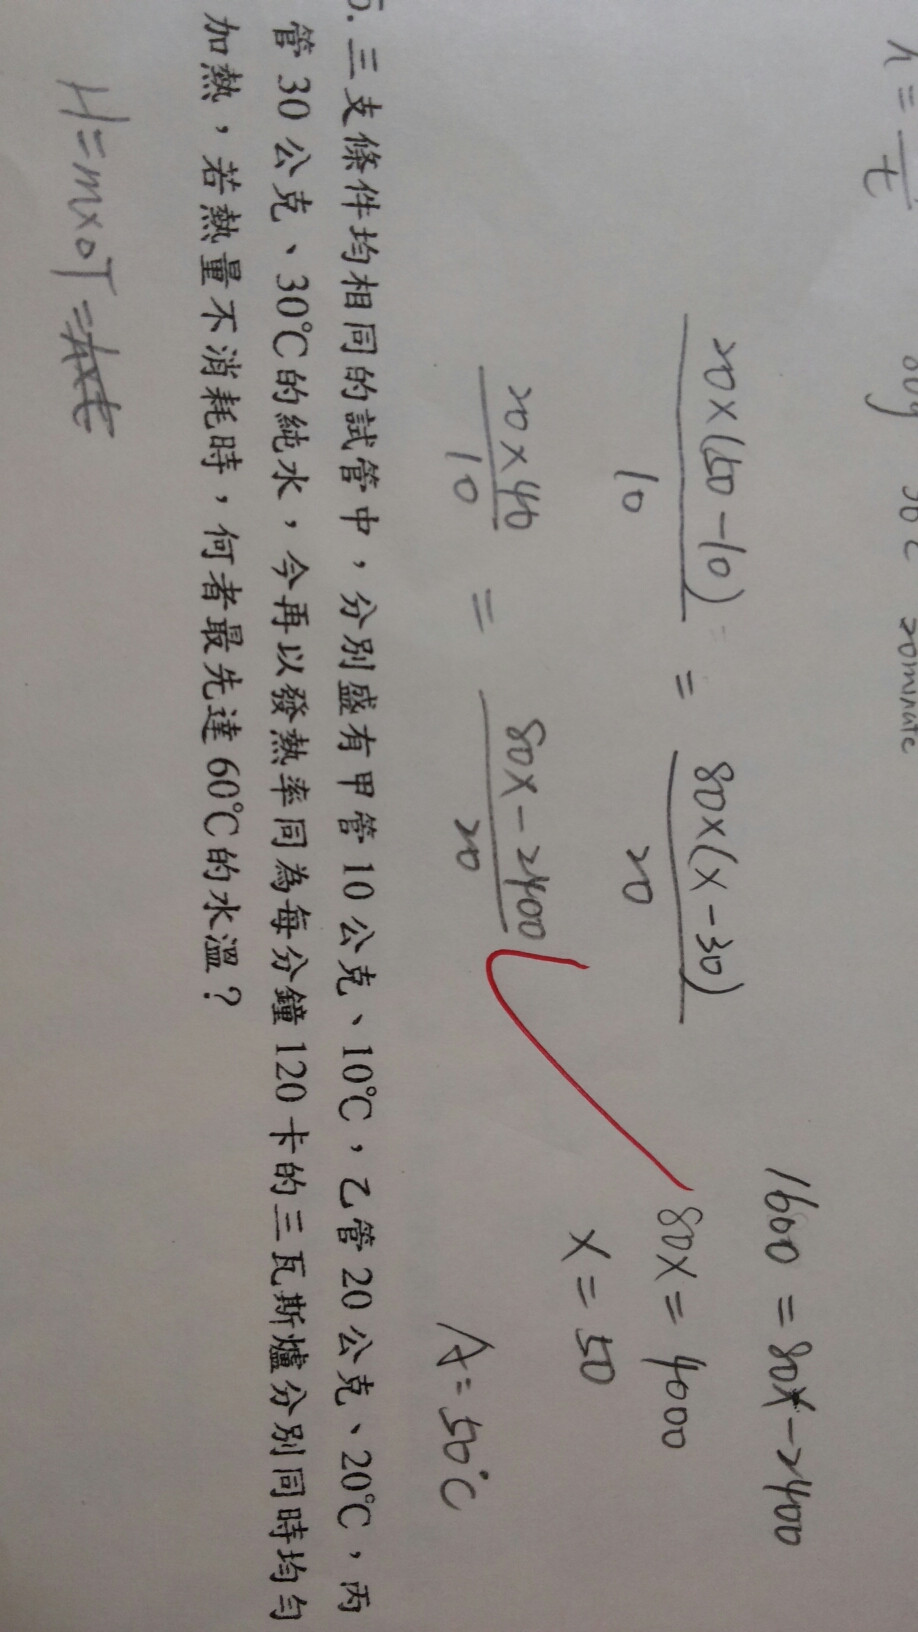 80g 30℃ 20minute
h = — t
1600 = 80X - 2400
20×(50-10) / 10 = 80×(X-30) / 20
80X = 4000
X = 50
20×40 / 10 = 80X-2400 / 20
A = 50℃
5. 三支條件均相同的試管中，分別盛有甲管 10 公克、10℃，乙管 20 公克、20℃，丙
管 30 公克、30℃的純水，今再以發熱率同為每分鐘 120 卡的三瓦斯爐分別同時均勻
加熱，若熱量不消耗時，何者最先達 60℃的水溫？
H=m×△T=